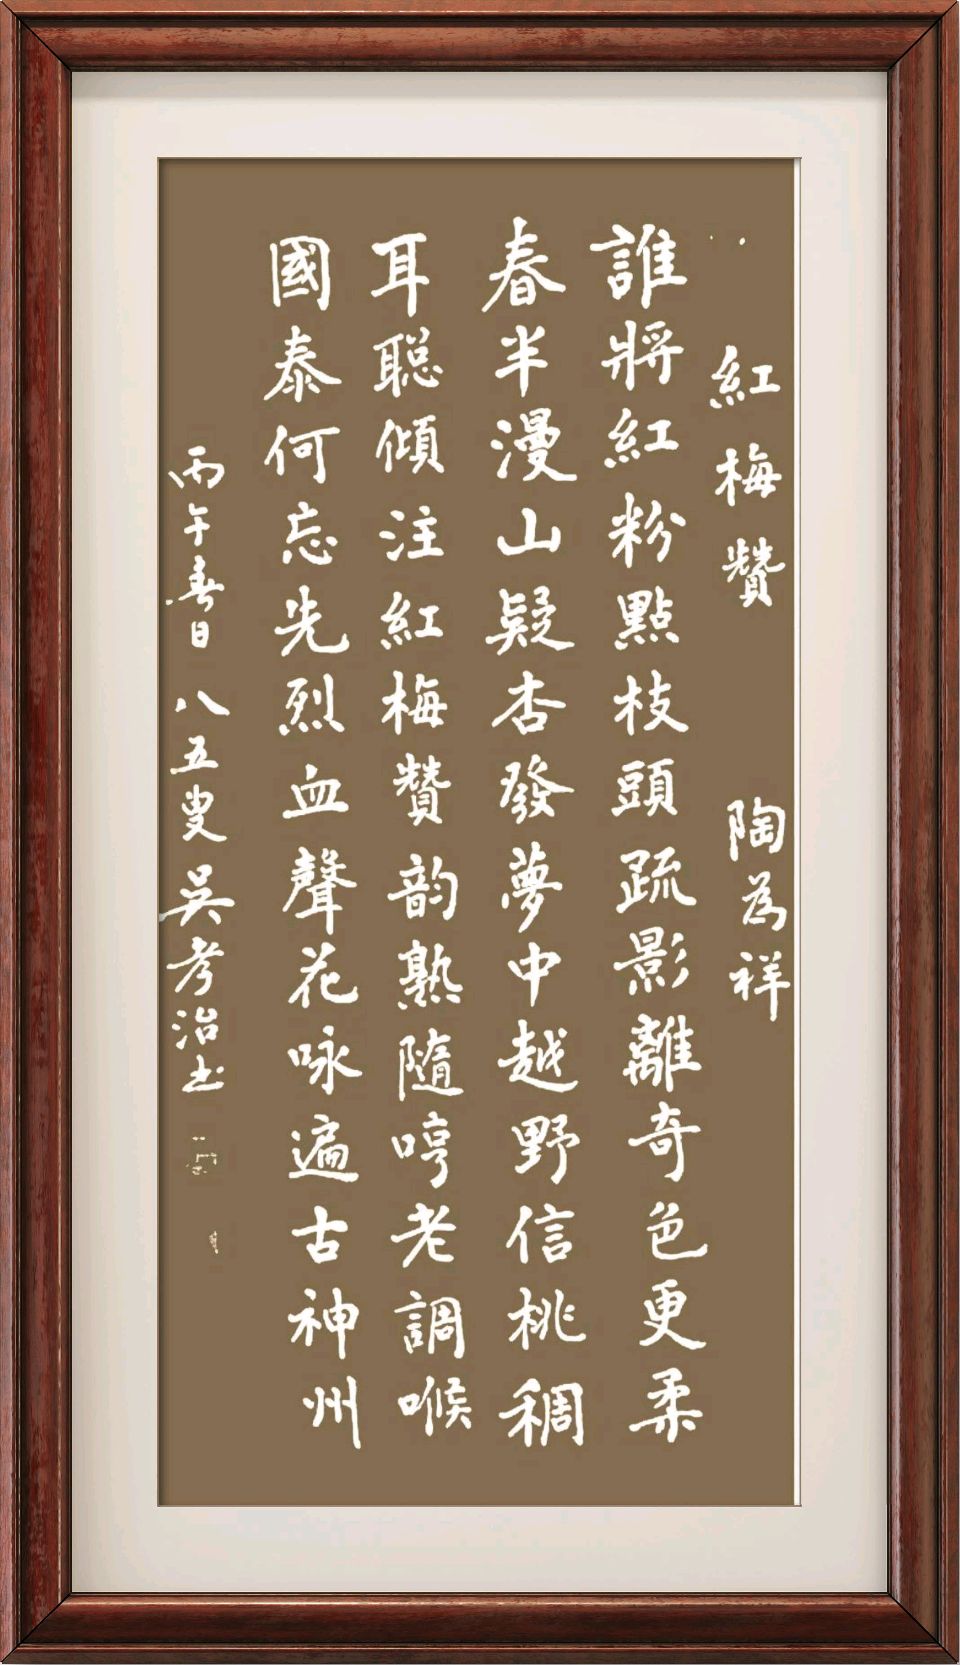 紅梅贊 陶为祥
誰將紅粉點枝頭疏影離奇色更柔
春半漫山疑杏發夢中越野信桃稠
耳聪傾注紅梅贊韵熟隨哼老調喉
國泰何忘先烈血聲花咏遍古神州
丙午春日 八五叟吴孝治书